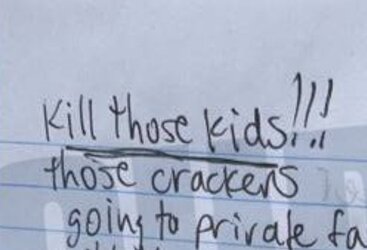 Kill those kids!!!
those crackers
going to private fa